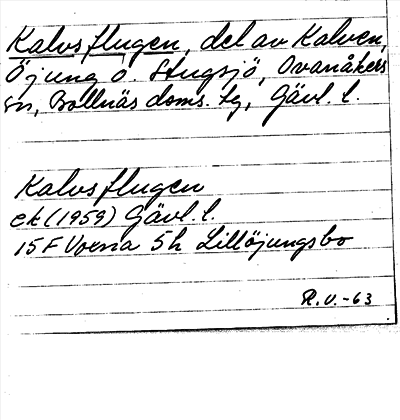 Kalvsflugen, del av Kalven,
Öjung o. Stugsjö, Ovanåkers
sn, Bollnäs doms. tg, Gävl. l.
Kalvsflugen
ek (1959) Gävl. l.
15F Voxna 5h Lillöjungsbo
R.V.-63